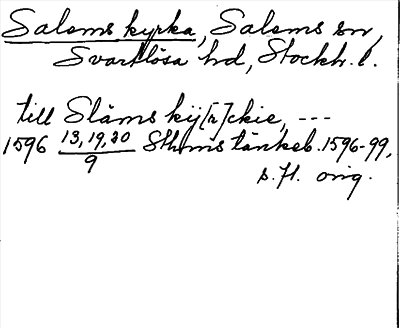 Salems kyrka, Salems sn,
Svartlösa hd, Stockh. l.
till Släms kij[r]ckie, ---
1596 13,19,20/9 Sthms tänkeb. 1596-99,
s. 71. orig.